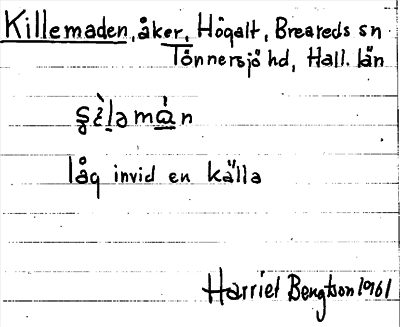 Killemaden, åker, Högalt, Breareds sn
Tönnersjö hd, Hall. län
ʂìləmàn
låg invid en källa
Harriet Bengtson 1961